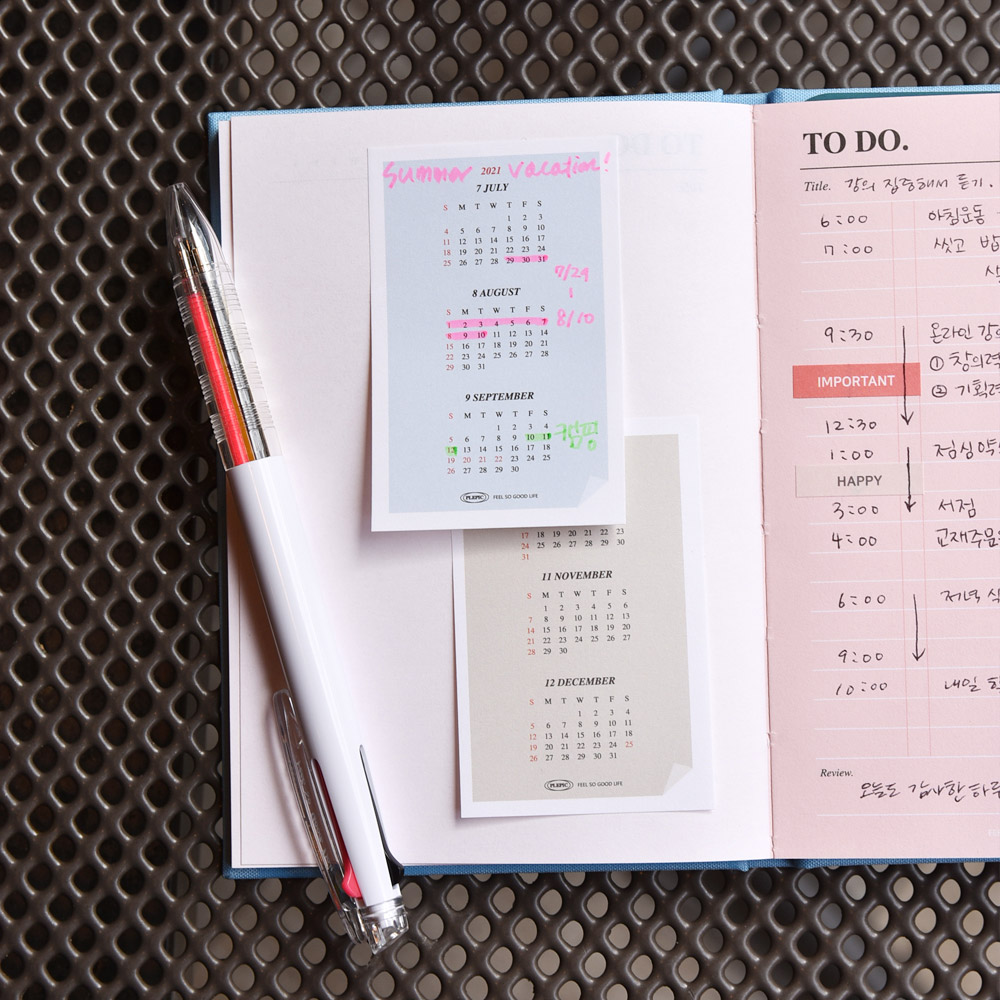 Summer vacation!
2021
7 JULY
S M T W T F S
1 2 3
4 5 6 7 8 9 10
11 12 13 14 15 16 17
18 19 20 21 22 23 24
25 26 27 28 29 30 31
7/29
8/10
8 AUGUST
S M T W T F S
1 2 3 4 5 6 7
8 9 10 11 12 13 14
15 16 17 18 19 20 21
22 23 24 25 26 27 28
29 30 31
9 SEPTEMBER
S M T W T F S
1 2 3 4
5 6 7 8 9 10 11
캠핑
12 13 14 15 16 17 18
19 20 21 22 23 24 25
26 27 28 29 30
PLEPIC FEEL SO GOOD LIFE
17 18 19 20 21 22 23
24 25 26 27 28 29 30
31
11 NOVEMBER
S M T W T F S
1 2 3 4 5 6
7 8 9 10 11 12 13
14 15 16 17 18 19 20
21 22 23 24 25 26 27
28 29 30
12 DECEMBER
S M T W T F S
1 2 3 4
5 6 7 8 9 10 11
12 13 14 15 16 17 18
19 20 21 22 23 24 25
26 27 28 29 30 31
PLEPIC FEEL SO GOOD LIFE
TO DO.
Title. 강의 집중해서 듣기.
6:00 아침운동
7:00 씻고 밥
9:30 온라인 강의
① 창의력
IMPORTANT ② 기획력
12:30
1:00 점심약속
HAPPY
3:00 서점
4:00 교재주문
6:00 저녁 식
9:00
10:00 내일
Review.
오늘도 감사한 하루